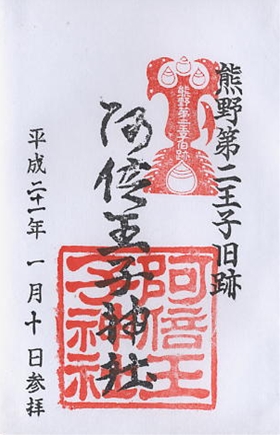 熊野第二王子旧跡
熊野第二王子旧跡
阿倍王子神社
平成二十一年一月十日参拝
阿倍王
子神社